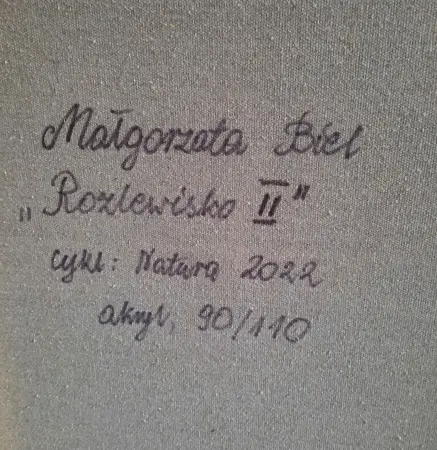 Małgorzata Biel
„Rozlewisko II"
cykl: Natura 2022
akryl, 90/110